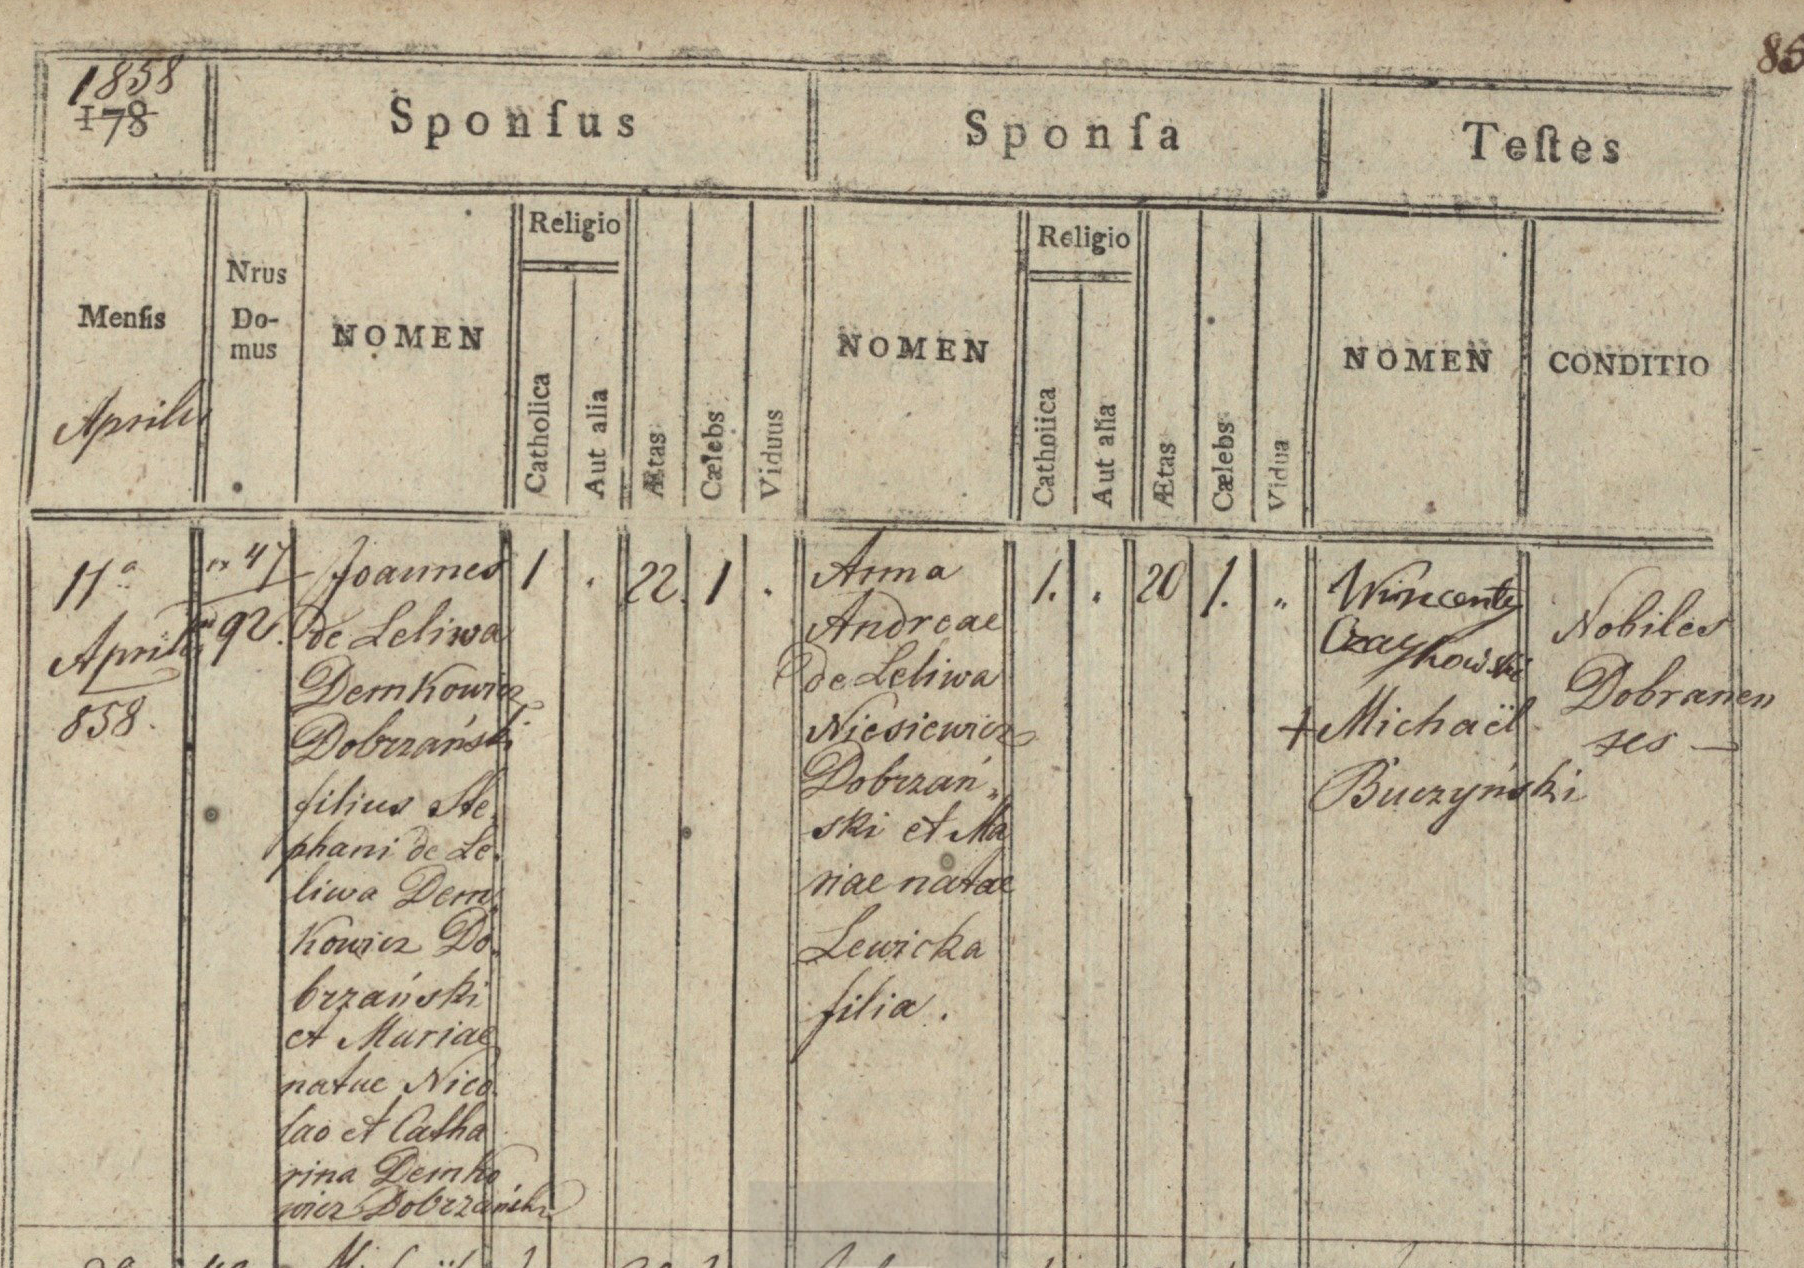 85
1858
178
Sponſus
Sponſa
Teſtes
Menſis
Aprilis
Nrus
Do-
mus
NOMEN
Religio
Catholica
Aut alia
Ætas
Cælebs
Viduus
NOMEN
Religio
Catholica
Aut alia
Ætas
Cælebs
Vidua
NOMEN
CONDITIO
17ª
Aprilis
858.
47
92.
Joannes
de Leliwa
Demkowicz
Dobrzański
filius Ste,
phani de Le,
liwa Dem,
kowicz Do,
brzański
et Mariae
natae Nico,
lao et Catha
rina Demko
wicz Dobrzański
1
.
22.
1
.
Anna
Andreae
de Leliwa
Niesiewicz
Dobrzań„
ski et Ma
riae natae
Lewicka
filia.
1.
.
20
1.
„
Wincenty
Czaykowski
+ Michaël
Buczyński
Nobiles
Dobranen
ses —